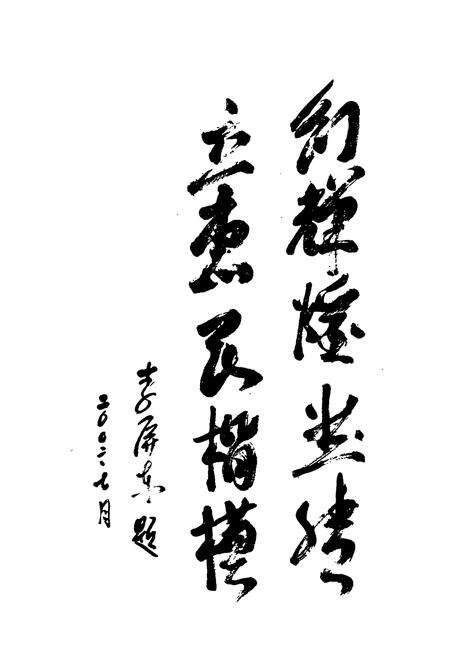 创辉煌业绩
立惠民楷模
李屏东题
二〇〇二·七月